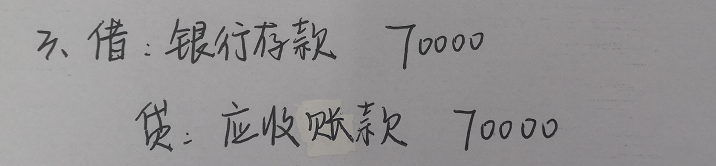 3、借：银行存款 70000
贷：应收账款 70000